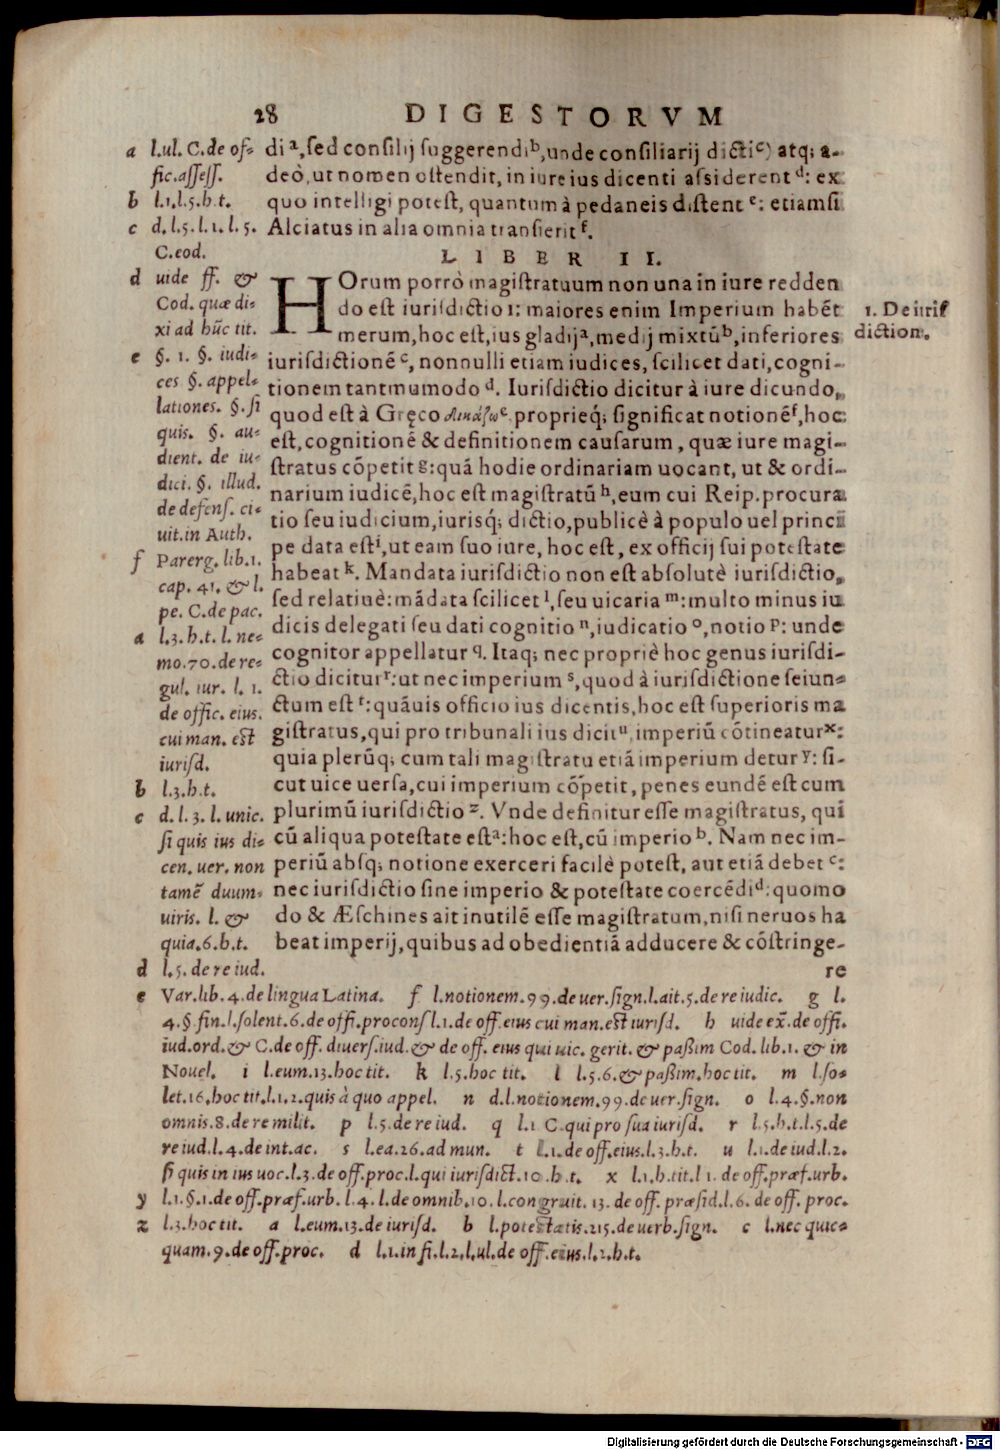 28 DIGESTORVM
di a, sed consilij suggerendi b, unde consiliarij dicti c) atq; a-
deò, ut nomen ostendit, in iure ius dicenti assiderent d: ex
quo intelligi potest, quantum à pedaneis distent e: etiamsi
Alciatus in alia omnia transierit f.
LIBER II.
HOrum porrò magistratuum non una in iure redden
do est iurisdictio 1: maiores enim Imperium habēt
merum, hoc est, ius gladij a, medij mixtū b, inferiores
iurisdictionē c, nonnulli etiam iudices, scilicet dati, cogni-
tionem tantmumodo d. Iurisdictio dicitur à iure dicundo,
quod est à Gręco Δικάζω e, proprieq́; significat notionē f, hoc
est, cognitionē & definitionem causarum, quæ iure magi-
stratus cōpetit g: quā hodie ordinariam uocant, ut & ordi-
narium iudicē, hoc est magistratū h, eum cui Reip. procura
tio seu iudicium, iurisq́; dictio, publicè à populo uel princi
pe data est i, ut eam suo iure, hoc est, ex officij sui potestate
habeat k. Mandata iurisdictio non est absolutè iurisdictio,
sed relatiuè: mādata scilicet l, seu uicaria m: multo minus iu
dicis delegati seu dati cognitio n, iudicatio o, notio p: unde
cognitor appellatur q. Itaq; nec propriè hoc genus iurisdi-
ctio dicitur r: ut nec imperium s, quod à iurisdictione seiun-
ctum est t: quāuis officio ius dicentis, hoc est superioris ma
gistratus, qui pro tribunali ius dicit u, imperiū cōtineatur x:
quia plerūq; cum tali magistratu etiā imperium detur y: si-
cut uice uersa, cui imperium cōpetit, penes eundē est cum
plurimū iurisdictio z. Vnde definitur esse magistratus, qui
cū aliqua potestate est a: hoc est, cū imperio b. Nam nec im-
periū absq; notione exerceri facilè potest, aut etiā debet c:
nec iurisdictio sine imperio & potestate coercēdi d: quomo
do & Æschines ait inutilē esse magistratum, nisi neruos ha
beat imperij, quibus ad obedientiā adducere & cōstringe-
re
1. De iuris
diction.
a l.ul. C. de of-
fic. assess.
b l.1.l.5.h.t.
c d.l.5.l.1.l.5.
C. eod.
d uide ff. &
Cod. quæ di-
xi ad hūc tit.
e §. 1. §. iudi-
ces §. appel-
lationes. §. si
quis. §. au-
dient. de iu-
dici. §. illud.
de defens. ci-
uit. in Auth.
f Parerg. lib.1.
cap. 41. & l.
pe. C. de pac.
a l.3.h.t. l. ne-
mo.70. de re-
gul. iur. l. 1.
de offic. eius.
cui man. est
iurisd.
b l.3.h.t.
c d.l.3.l. unic.
si quis ius di-
cen. uer. non
tamē duum-
uiris. l. &
quia.6.h.t.
d l.5. de re iud.
e Var. lib. 4. de lingua Latina. f l. notionem. 99. de uer. sign. l. ait. 5. de re iudic. g l.
4. § fin. l. solent. 6. de offi. procons l. 1. de off. eius cui man. est iurisd. h uide ex̄. de offi.
iud. ord. & C. de off. diuers. iud. & de off. eius qui uic. gerit. & paßim Cod. lib. 1. & in
Nouel. i l. eum. 13. hoc tit. k l. 5. hoc tit. l l. 5. 6. & paßim. hoc tit. m l. so-
let. 16. hoc tit. l. 1. 2. quis à quo appel. n d. l. notionem. 99. de uer. sign. o l. 4. §. non
omnis. 8. de re milit. p l. 5. de re iud. q l. 1 C. qui pro sua iurisd. r l. 5. h. t. l. 5. de
re iud. l. 4. de int. ac. s l. ea. 26. ad mun. t l. 1. de off. eius. l. 3. h. t. u l. 1. de iud. l. 2.
si quis in ius uoc. l. 3. de off. proc. l. qui iurisdict. 10. h. t. x l. 1. h. tit. l 1. de off. præf. urb.
y l. 1. §. 1. de off. præf. urb. l. 4. l. de omnib. 10. l. congruit. 13. de off. præsid. l. 6. de off. proc.
z l. 3. hoc tit. a l. eum. 13. de iurisd. b l. potestatis. 215. de uerb. sign. c l. nec quic-
quam. 9. de off. proc. d l. 1. in fi. l. 2. l. ul. de off. eius. l. 2. h. t.
Digitalisierung gefördert durch die Deutsche Forschungsgemeinschaft - DFG